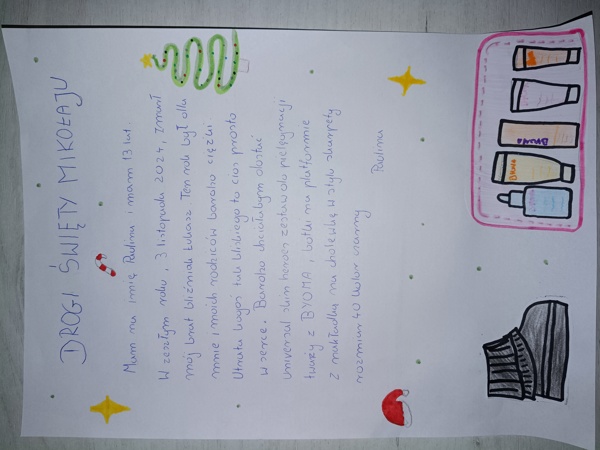 DROGI ŚWIĘTY MIKOŁAJU
Mam na imię Paulina i mam 13 lat.
W zeszłym roku, 3 listopada 2024, zmarł
mój brat bliźniak Łukasz Ten rok był dla
mnie i moich rodziców bardzo ciężki.
Utrata kogoś tak bliskiego to cios prosto
w serce. Bardzo chciałabym dostać
universal skin heroes zestaw do pielęgnacji
twarzy z BYOMA, botki na platformie
z nakładką na cholewkę w stylu skarpety
rozmiar 40 kolor czarny
Paulina